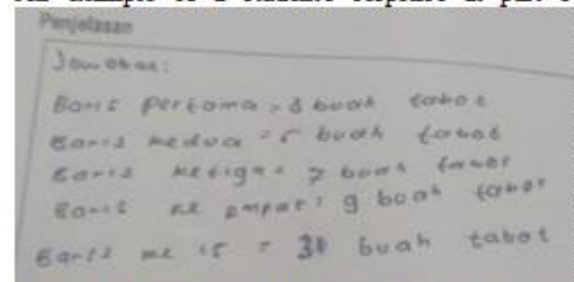 Penjelasan
Jawaban:
Baris pertama = 3 buah tabot
Baris kedua = 5 buah tabot
Baris ketiga = 7 buah tabot
Baris ke empat = 9 buah tabot
Baris ke 15 = 31 buah tabot